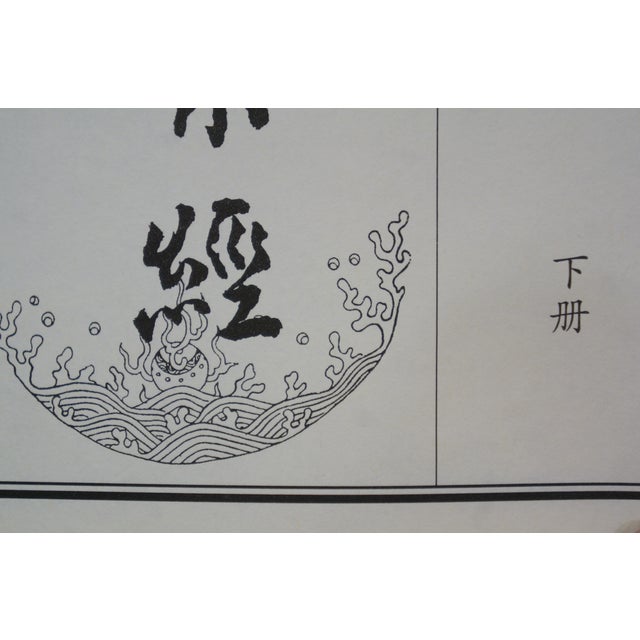 經
下册